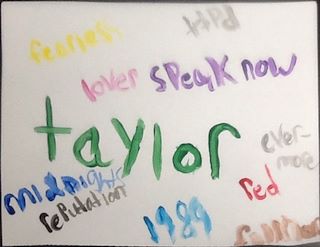 fearless
ttpd
lover
speak now
taylor
ever-
more
midnights
reputation
red
1989
folklore